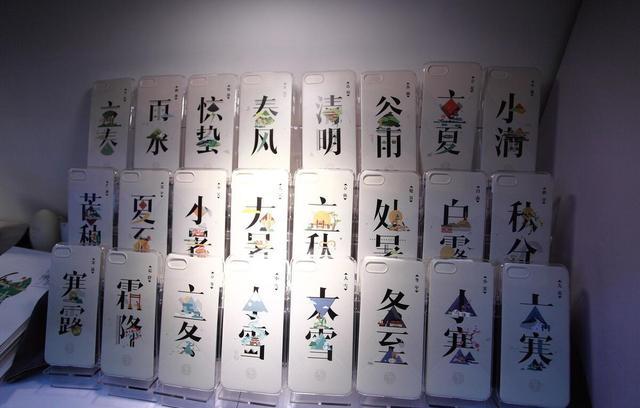 立春
雨水
惊蛰
春风
清明
谷雨
立夏
小满
芒种
夏至
小暑
大暑
立秋
处暑
白露
秋分
寒露
霜降
立冬
小雪
大雪
冬至
小寒
大寒